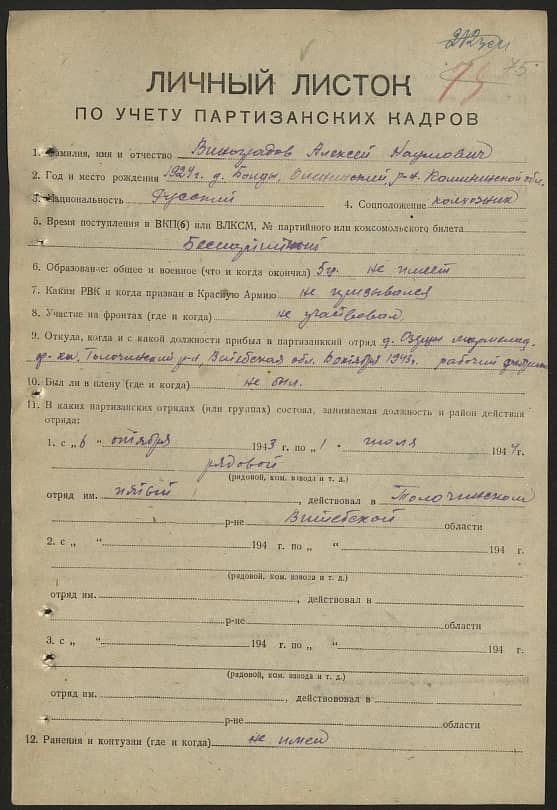 75
75
ЛИЧНЫЙ ЛИСТОК
ПО УЧЕТУ ПАРТИЗАНСКИХ КАДРОВ
1. Фамилия, имя и отчество Виноградов Алексей Наумович
2. Год и место рождения 1924 г. д. р-н Калининской обл.
3. Национальность Русский 4. Соцположение колхозник
5. Время поступления в ВКП(б) или ВЛКСМ, № партийного или комсомольского билета
Беспартийный
6. Образование: общее и военное (что и когда окончил) 5 гр. не имеет
7. Каким РВК и когда призван в Красную Армию не призывался
8. Участие на фронтах (где и когда) не участвовал
9. Откуда, когда и с какой должности прибыл в партизанский отряд д.
Толочинский р-н, Витебская обл. 6 октября 1943 г. рабочий
10. Был ли в плену (где и когда) не был.
11. В каких партизанских отрядах (или группах) состоял, занимаемая должность и район действия
отряда:
1. с „6 “ октября 1943 г. по „1 “ июля 1944 г.
рядовой
(рядовой, ком. взвода и т. д.)
отряд им. пятый , действовал в Толочинском
р-не Витебской области
2. с „ “ 194 г. по „ “ 194 г.
(рядовой, ком. взвода и т. д.)
отряд им. , действовал в
р-не области
3. с „ “ 194 г. по „ “ 194 г.
(рядовой, ком. взвода и т. д.)
отряд им. , действовал в
р-не области
12. Ранения и контузии (где и когда) не имел